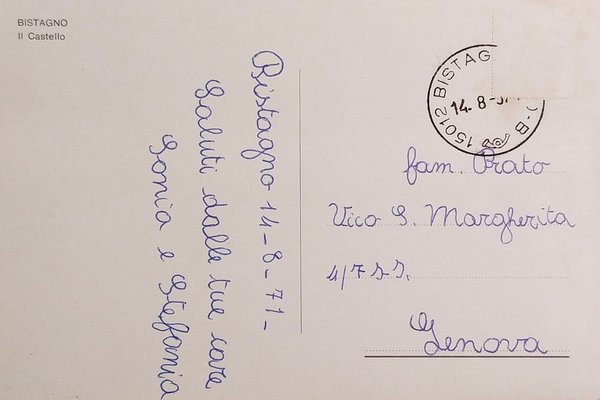 BISTAGNO
Il Castello
Bistagno 14-8-71-
Saluti dalle tue care
Sonia e Stefania
15012 BISTAG
14.8-
)-B
fam. Prato
Vico S. Margherita
4/7 S.S.
Genova